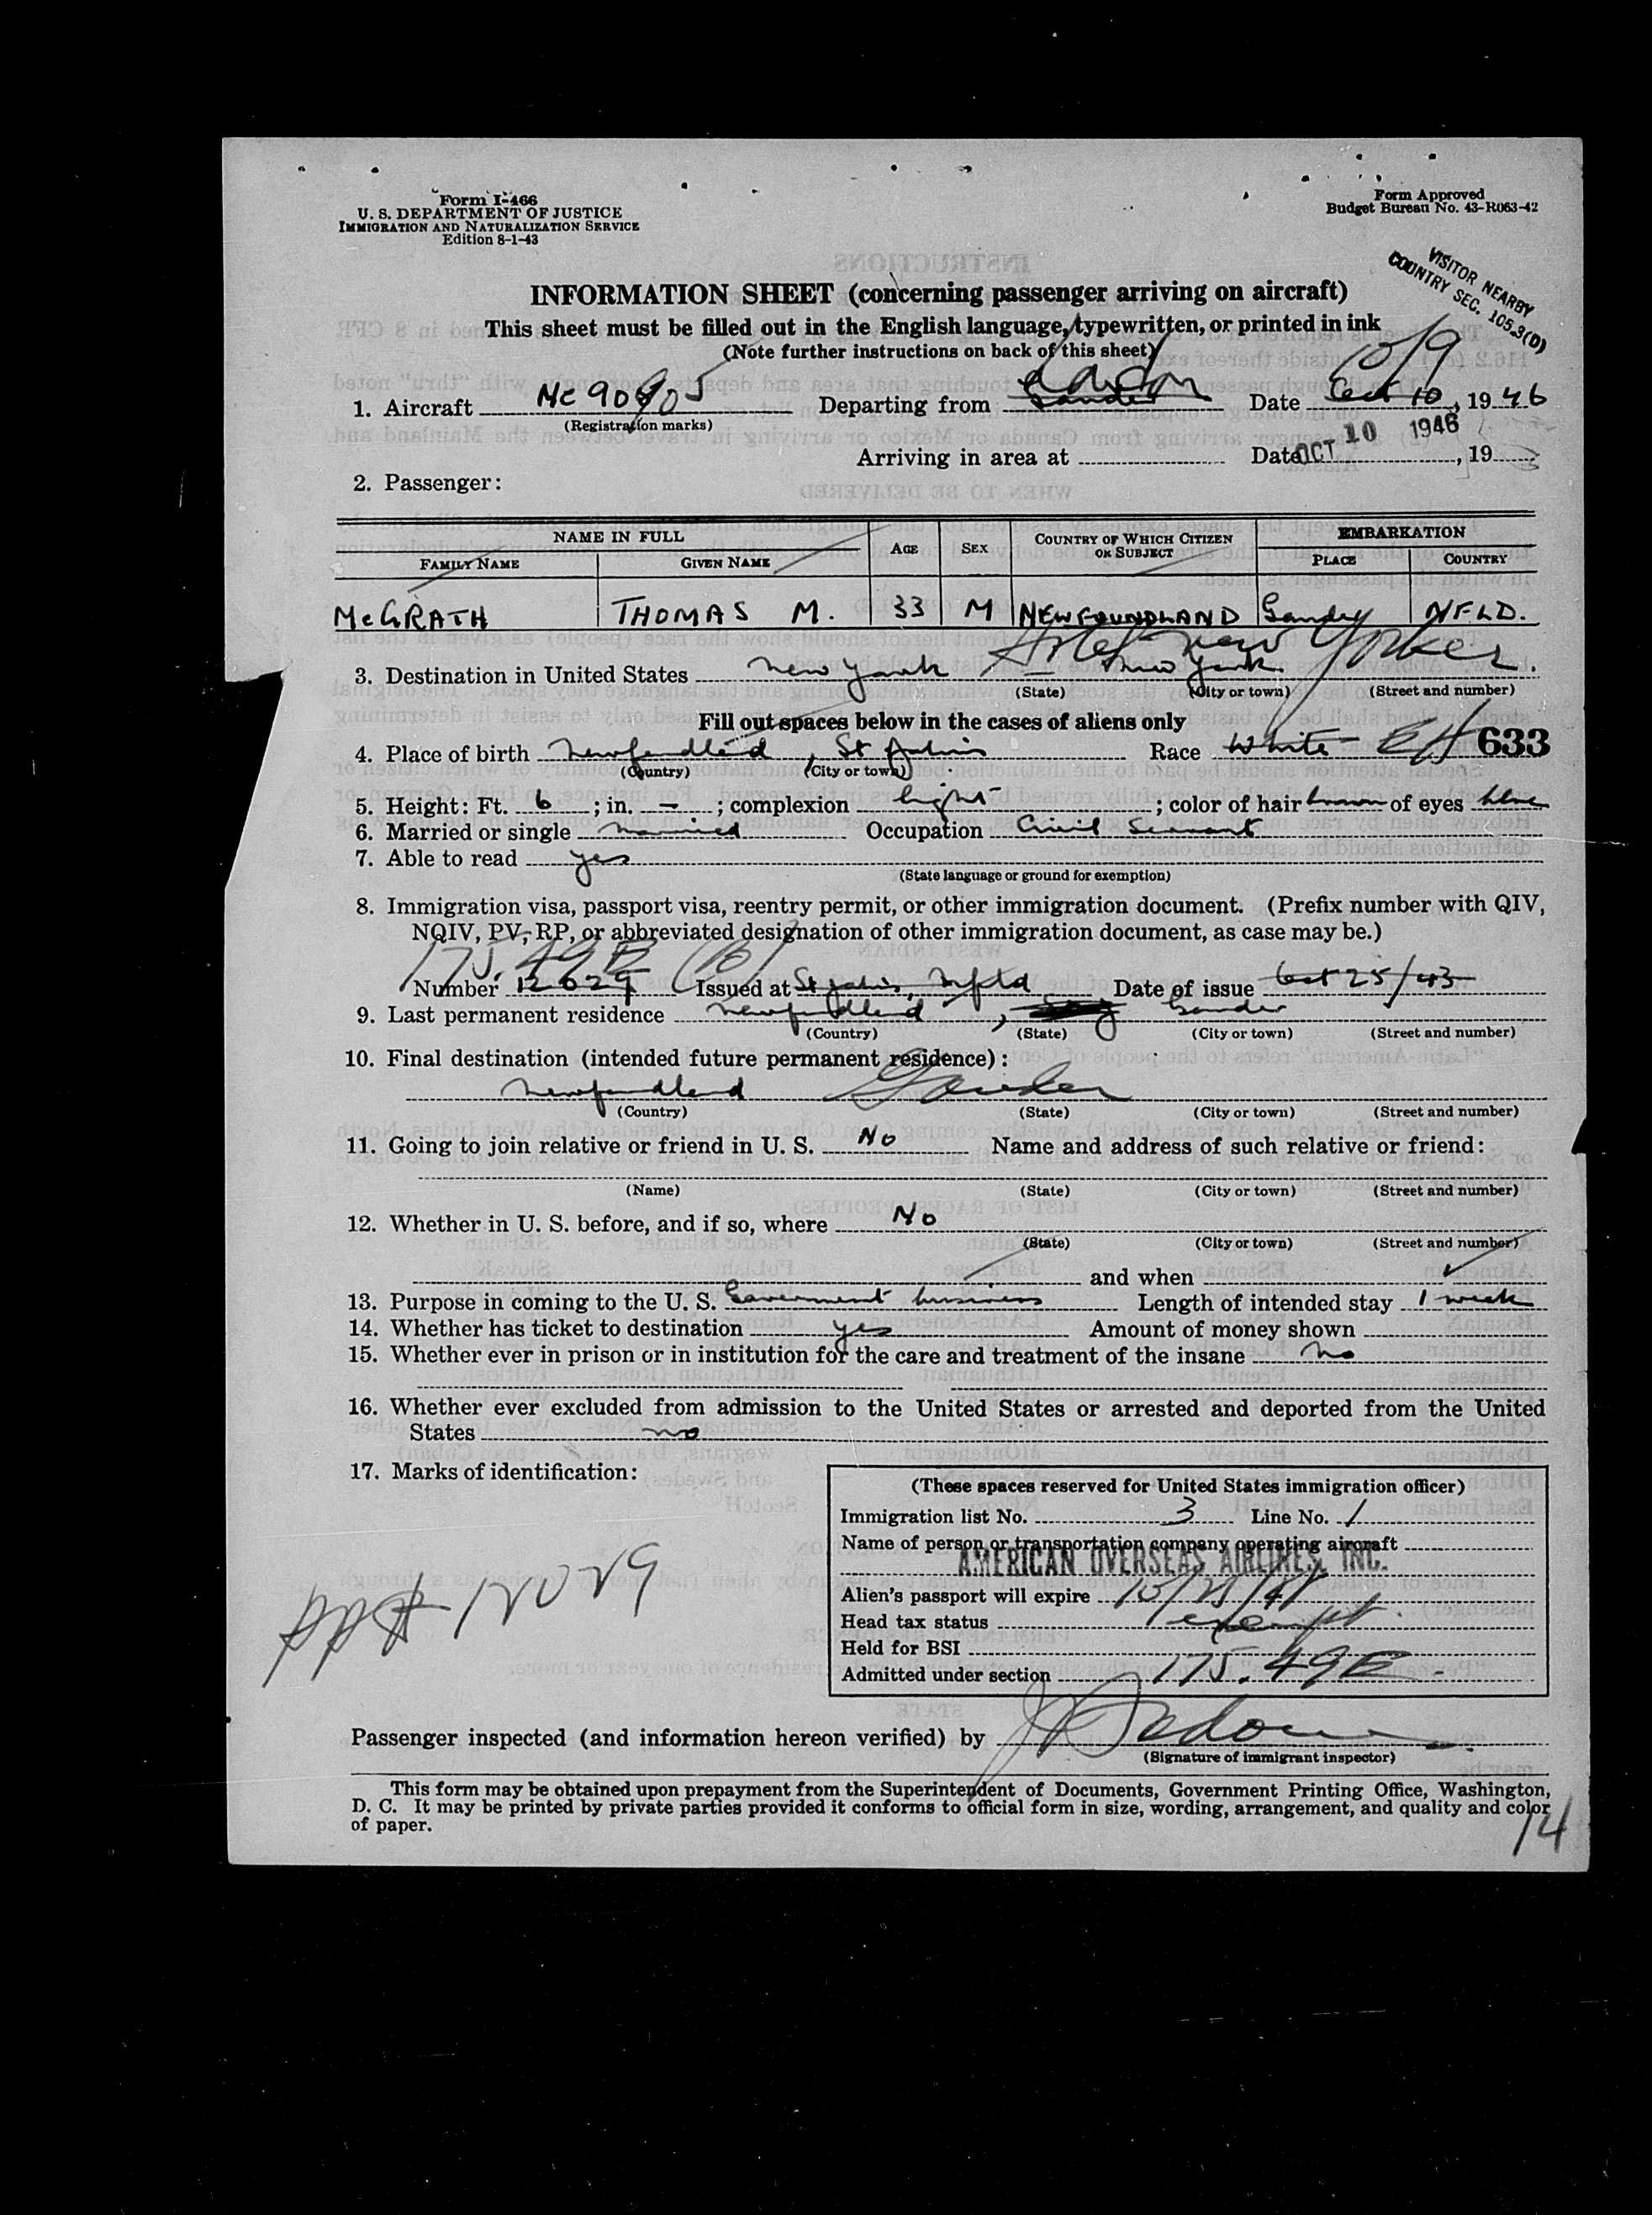 Form I-466
U. S. DEPARTMENT OF JUSTICE
IMMIGRATION AND NATURALIZATION SERVICE
Edition 8-1-43
Form Approved
Budget Bureau No. 43-R063-42
VISITOR NEARBY
COUNTRY SEC. 105.3(D)
INFORMATION SHEET (concerning passenger arriving on aircraft)
This sheet must be filled out in the English language, typewritten, or printed in ink
(Note further instructions on back of this sheet)
10/9
London
1. Aircraft NC 90905 Departing from Gander Date Oct 10, 1946
(Registration marks)
Arriving in area at Date OCT 10 1946, 19
2. Passenger:
NAME IN FULL AGE SEX COUNTRY OF WHICH CITIZEN OR SUBJECT EMBARKATION
FAMILY NAME GIVEN NAME PLACE COUNTRY
McGRATH THOMAS M. 33 M NEWFOUNDLAND Gander NFLD.
Hotel New Yorker.
3. Destination in United States New York New York
(State) (City or town) (Street and number)
Fill out spaces below in the cases of aliens only
4. Place of birth Newfoundland, St John's Race White - EH 633
(Country) (City or town)
5. Height: Ft. 6; in. -; complexion light; color of hair brown of eyes blue
6. Married or single Married Occupation Civil Servant
7. Able to read yes
(State language or ground for exemption)
8. Immigration visa, passport visa, reentry permit, or other immigration document. (Prefix number with QIV,
NQIV, PV, RP, or abbreviated designation of other immigration document, as case may be.)
175.49E (B)
Number 12029 Issued at St John's, Nfld Date of issue Oct 25/43
9. Last permanent residence Newfoundland, Gander
(Country) (State) (City or town) (Street and number)
10. Final destination (intended future permanent residence):
Newfoundland Gander
(Country) (State) (City or town) (Street and number)
11. Going to join relative or friend in U. S. No Name and address of such relative or friend:
(Name) (State) (City or town) (Street and number)
12. Whether in U. S. before, and if so, where No
(State) (City or town) (Street and number)
and when
13. Purpose in coming to the U. S. Government business Length of intended stay 1 week
14. Whether has ticket to destination yes Amount of money shown
15. Whether ever in prison or in institution for the care and treatment of the insane No
16. Whether ever excluded from admission to the United States or arrested and deported from the United
States no
17. Marks of identification:
(These spaces reserved for United States immigration officer)
Immigration list No. 3 Line No. 1
Name of person or transportation company operating aircraft
AMERICAN OVERSEAS AIRLINES, INC.
Alien's passport will expire 10/25/48
Head tax status exempt
Held for BSI
Admitted under section 175.49E
ppt 12029
Passenger inspected (and information hereon verified) by
(Signature of immigrant inspector)
This form may be obtained upon prepayment from the Superintendent of Documents, Government Printing Office, Washington,
D. C. It may be printed by private parties provided it conforms to official form in size, wording, arrangement, and quality and color
of paper.
14